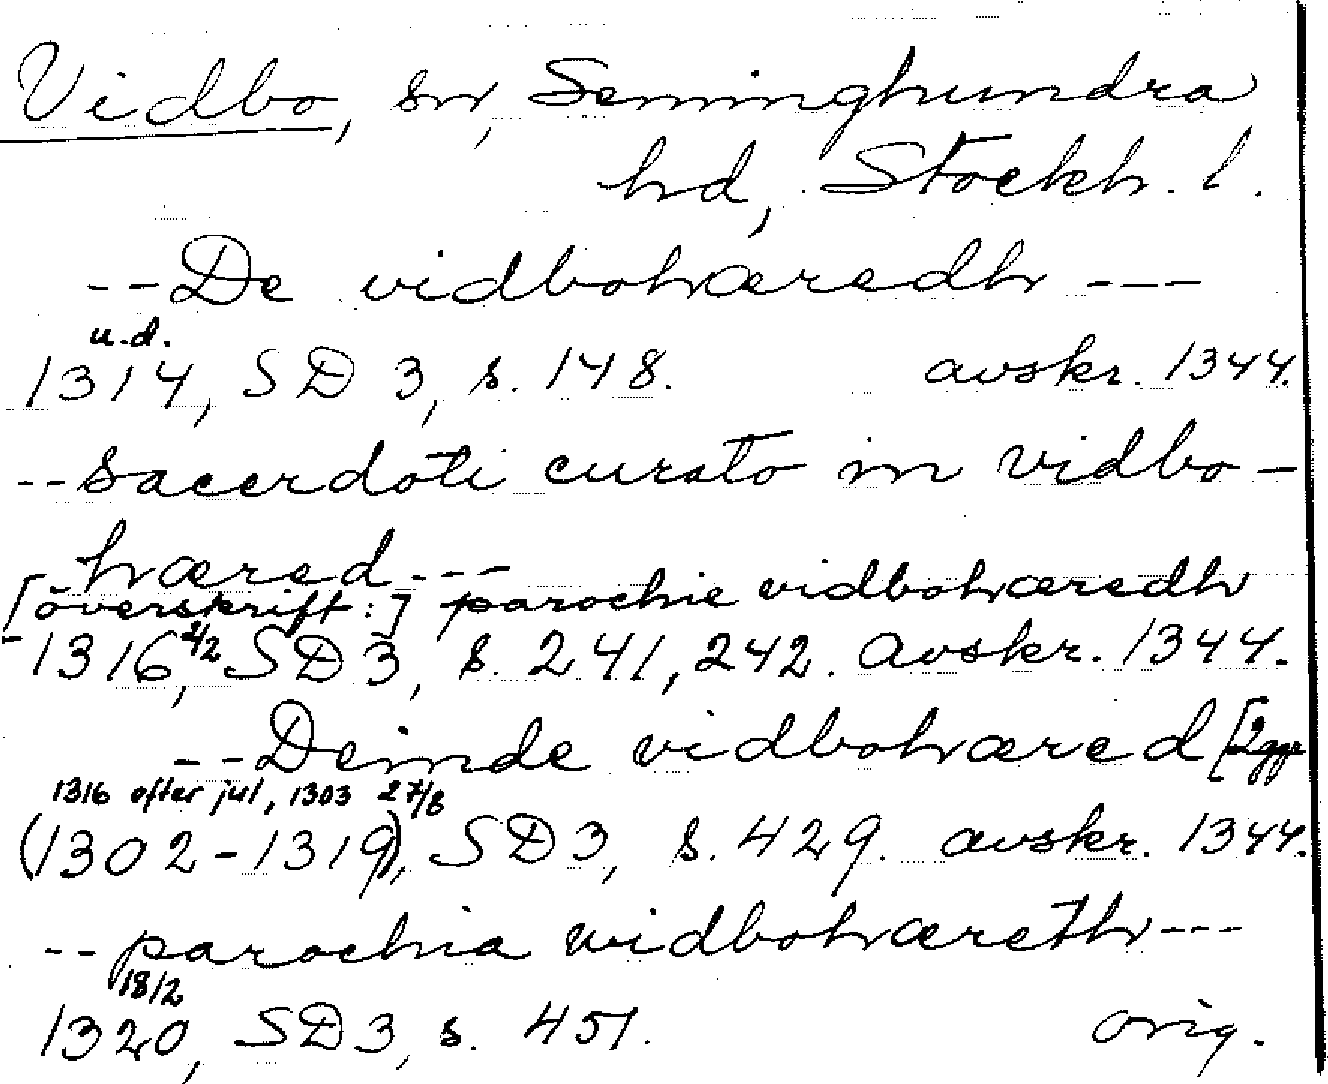 Vidbo, sn, Seminghundra
hd, Stockh. l.
--De vidbohæredh ---
u.d.
1314, SD 3, s. 148. avskr. 1344.
--sacerdoti curato in vidbo-
hæred---
[överskrift:] parochie vidbohæredh
1316, 2/2 SD 3, s. 241, 242. avskr. 1344.
--Deinde vidbohæred [2 ggr
1316 efter jul, 1303 27/8
(1302-1319), SD 3, s. 429. avskr. 1344.
--parochia widbohæreth---
18/2
1320, SD 3, s. 451. orig.